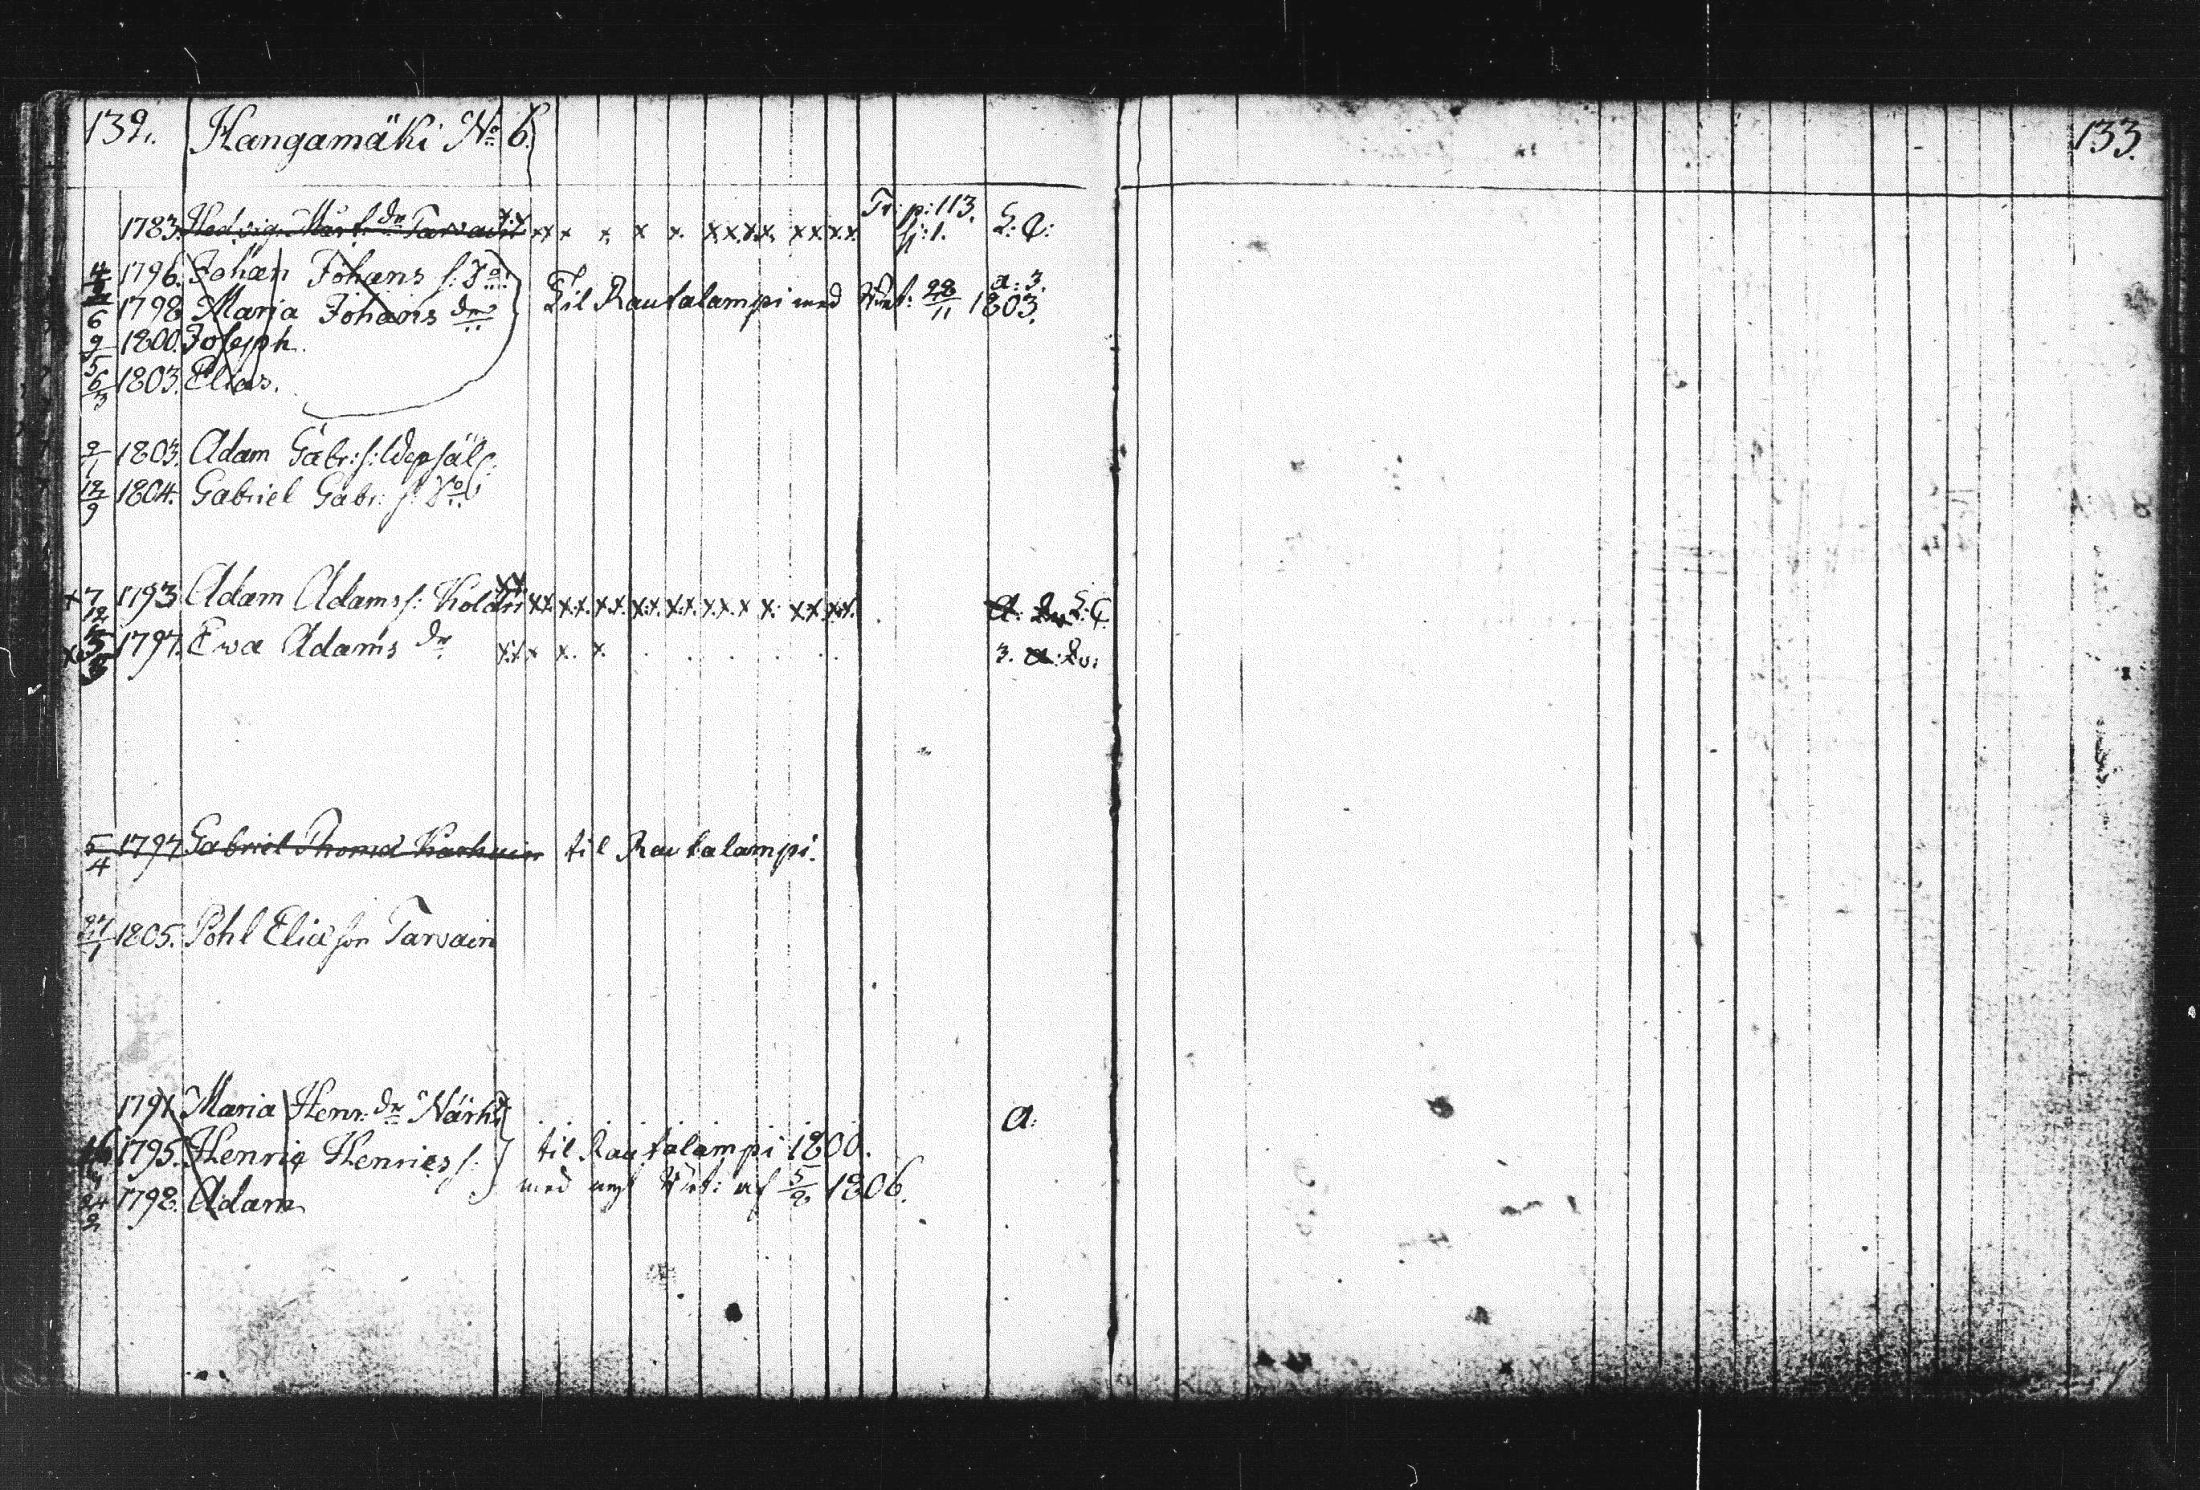 132. Kangamäki No 6.
133.
1783. Hedvig Mart. dr Tarvain Tr: p: 113. L. C:
h: 1.
4 1796. Johan Johans s: a: 3.
1798 Maria Johans dr Til Rautalampi med Att: 28/11 1803.
6
9/5 1800. Joseph
6/3 1803. Elias.
2/1 1803. Adam Gabr: s:
12/9 1804. Gabriel Gabr: s:
7/12 1793 Adam Adams s: Holdin L: C
5 1797. Ewa Adams dr 3.
5/4 1797 Gabriel Thomas Karhuin til Rautalampi.
27/1 1805. Pohl Elias son Tarvain
1791. Maria Henr. dr Närh a:
16 1795. Henric Henrics s: til Rautalampi 1800.
med nytt Att: af 5/2 1806.
1798. Adam